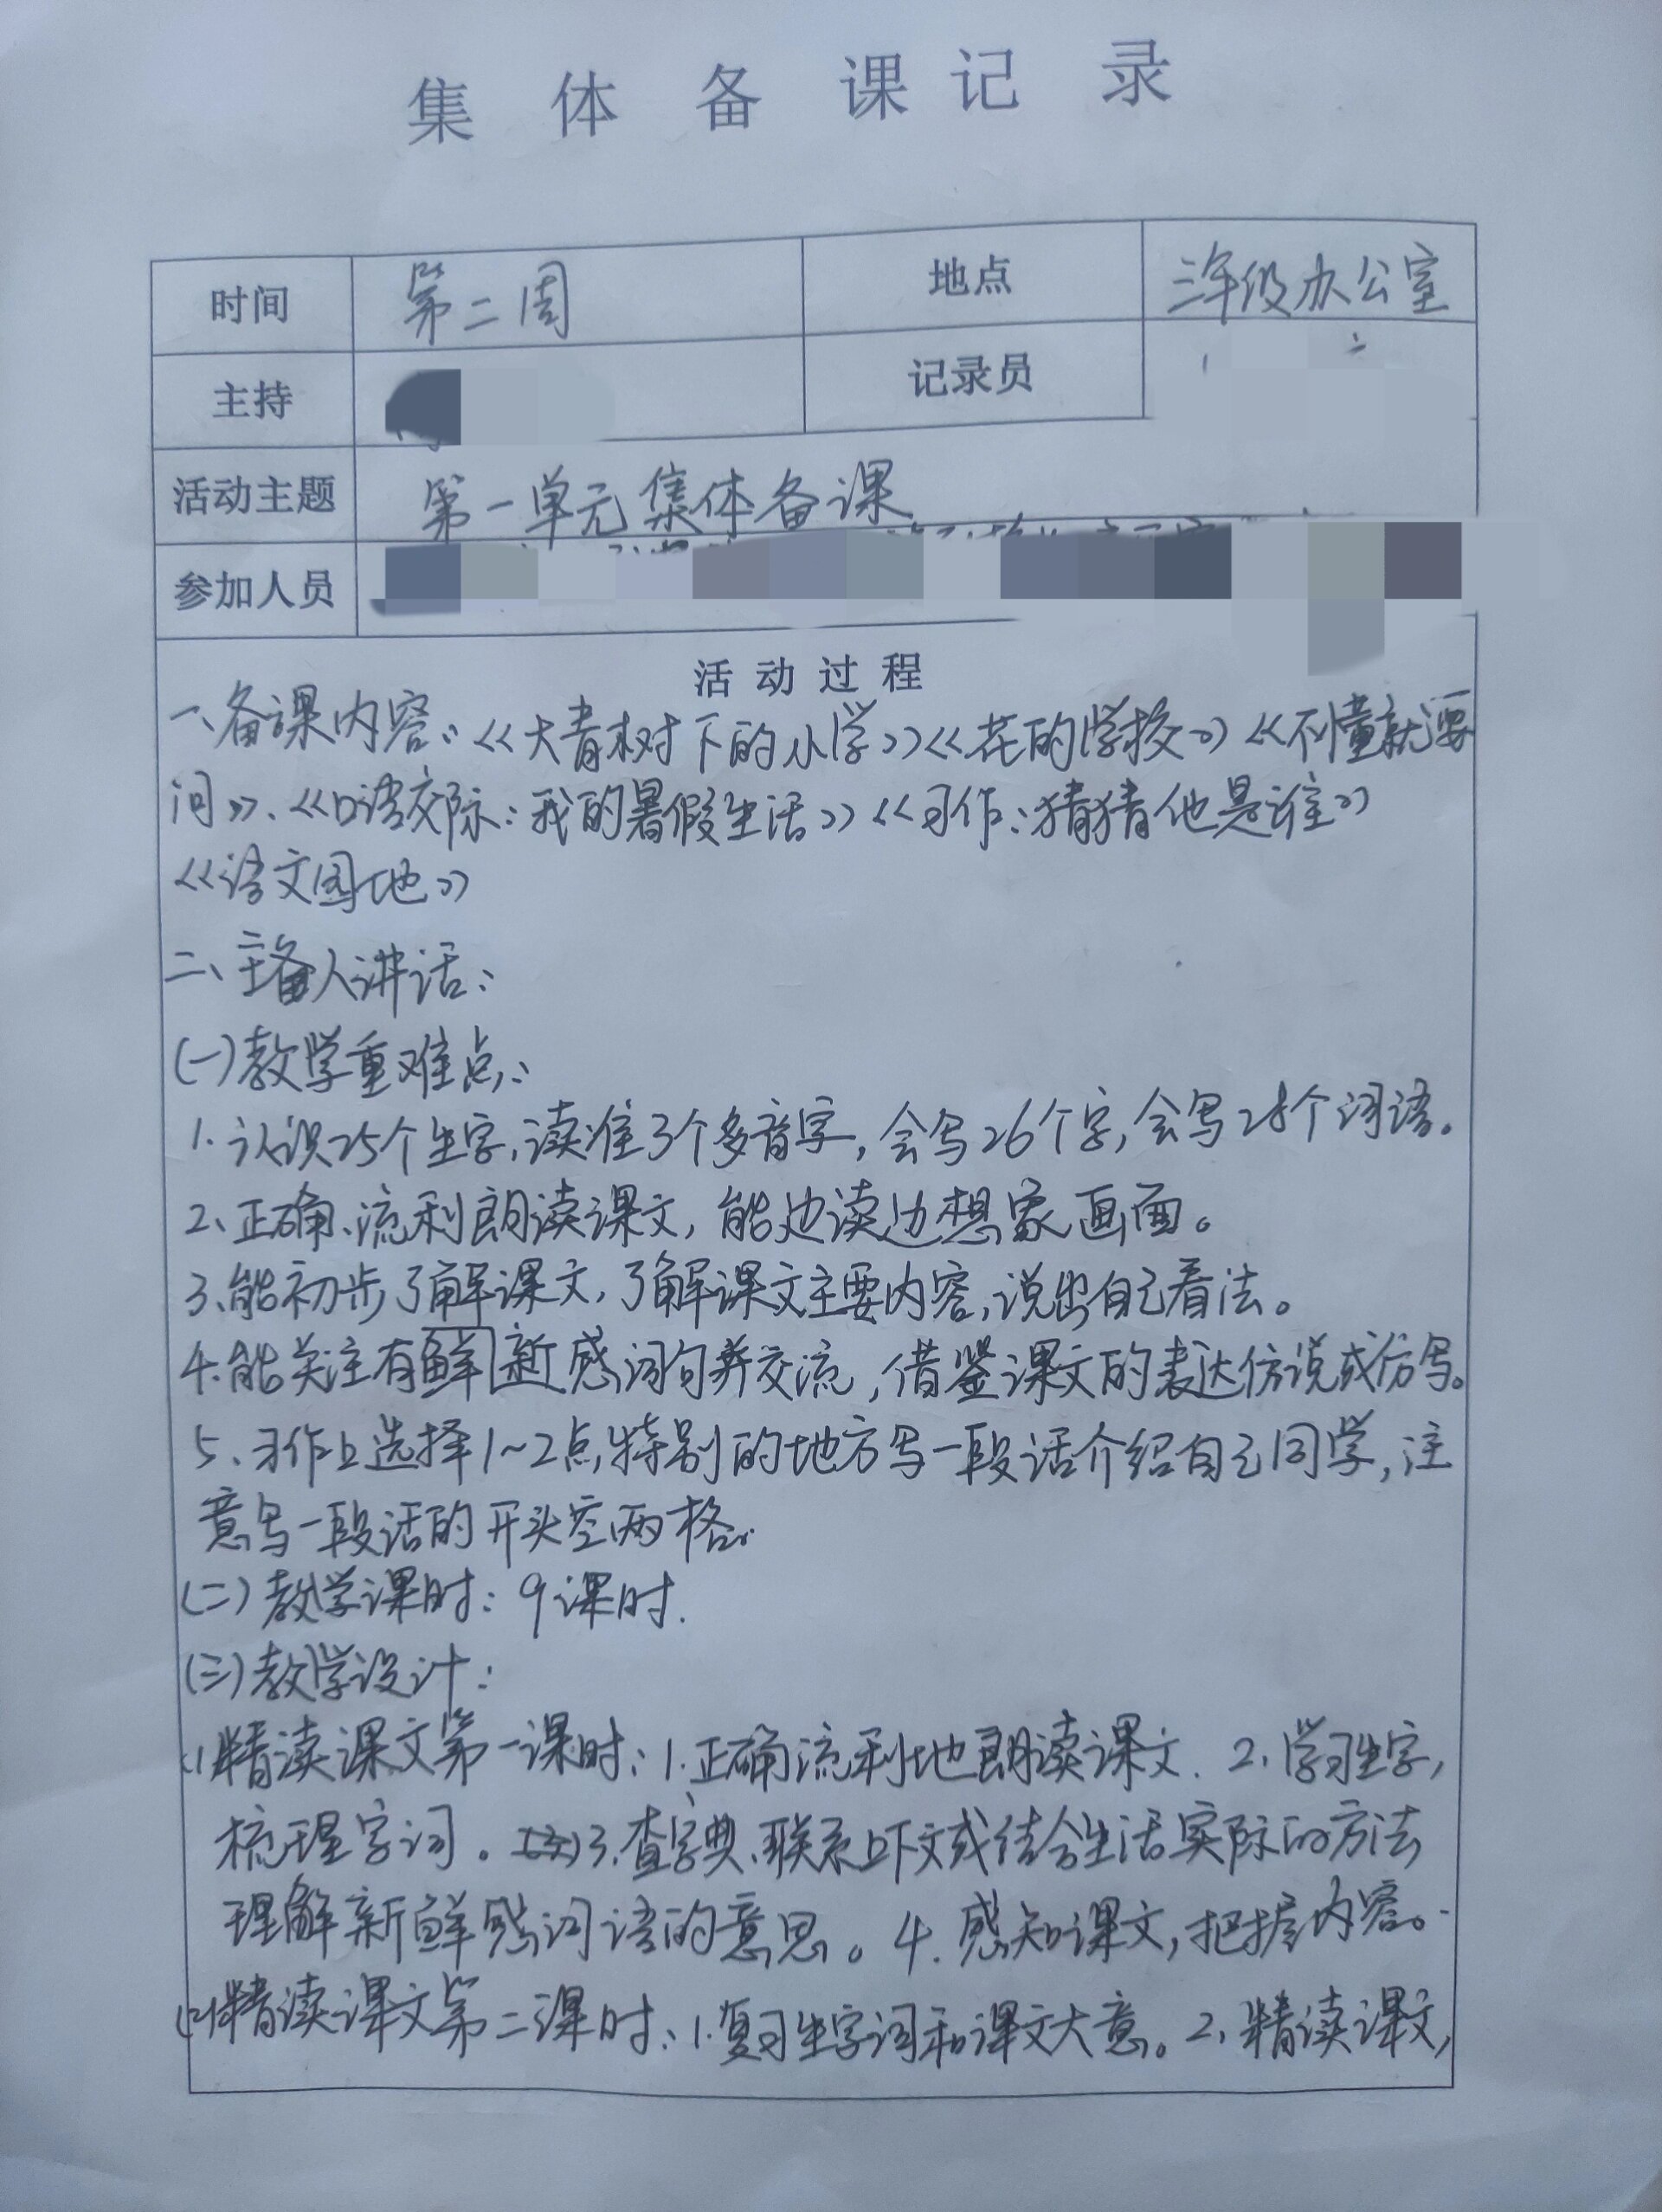 集体备课记录
时间 第二周 地点 三年级办公室
主持 记录员
活动主题 第一单元集体备课
参加人员
活动过程
一、备课内容:《大青树下的小学》《花的学校》《不懂就要
问》、《口语交际:我的暑假生活》《习作:猜猜他是谁》
《语文园地》
二、主备人讲话:
(一)教学重难点:
1. 认识25个生字,读准3个多音字,会写26个字,会写28个词语。
2、正确、流利朗读课文,能边读边想象画面。
3、能初步了解课文,了解课文主要内容,说出自己看法。
4、能关注有鲜新感词句并交流,借鉴课文的表达仿说或仿写。
5、习作上选择1~2点特别的地方写一段话介绍自己同学,注
意写一段话的开头空两格。
(二)教学课时:9课时.
(三)教学设计:
(1)精读课文第一课时:1.正确流利地朗读课文. 2、学习生字,
梳理字词。3.查字典、联系上下文或结合生活实际的方法
理解新鲜感词语的意思。4.感知课文,把握内容。
(2)精读课文第二课时:1.复习生字词和课文大意。2、精读课文,